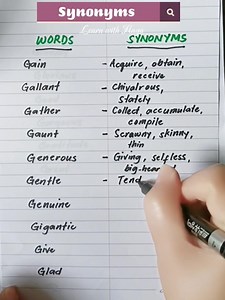 Synonyms
WORDS SYNONYMS
Gain - Acquire, obtain,
receive
Gallant - Chivalrous,
stately
Gather - Collect, accumulate,
compile
Gaunt - Scrawny, skinny,
thin
Generous - Giving, selfless,
Gentle - Tend
Genuine
Gigantic
Give
Glad